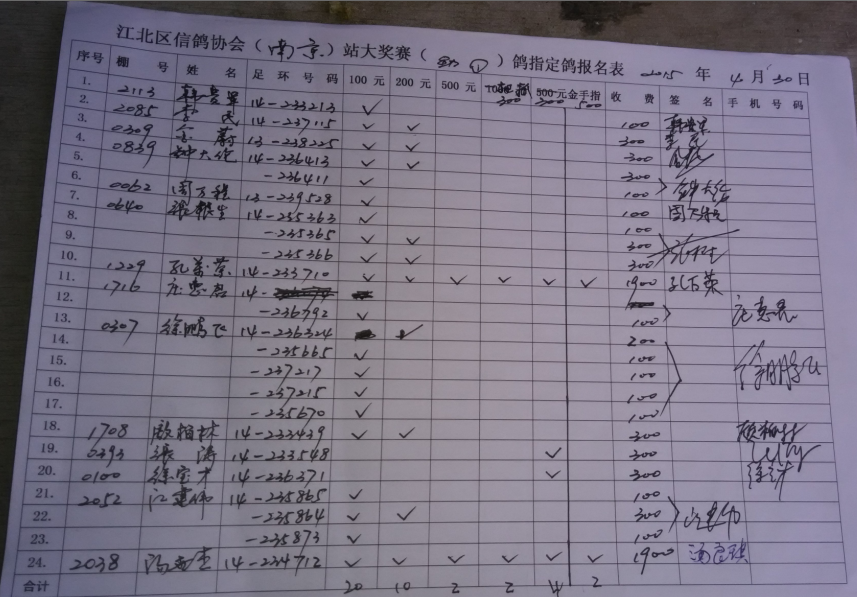 江北区信鸽协会（南京）站大奖赛（ ①）鸽指定鸽报名表 2015 年 4 月 30 日
序号 棚 号 姓 名 足 环 号 码 100 元 200 元 500 元 300 500元 200 金手指 500 收 费 签 名 手 机 号 码
1. 2113 14-233213 ✓ 100
2. 2085 李 民 14-237115 ✓ ✓ 300
3. 0309 金 蔚 13-238225 ✓ ✓ 300
4. 0839 钟大伦 14-236413 ✓ ✓ 300
5. -236411 ✓ 100
6. 0062 周万程 13-239528 ✓ 100 周万程
7. 0640 14-235363 ✓ 100
8. -235365 ✓ ✓ 300
9. -235366 ✓ ✓ 300
10. 1229 孔万荣 14-233710 ✓ ✓ ✓ ✓ ✓ ✓ 1900 孔万荣
11. 1716 庄惠君 14-
12. -236792 ✓ 100
13. 0307 徐鹏飞 14-236324 ✓ 200
14. -235665 ✓ 100
15. -237217 ✓ 100
16. -237215 ✓ 100
17. -235670 ✓ 100
18. 1708 殷柏林 14-233439 ✓ ✓ 300
19. 0393 张 涛 14-233548 ✓ 300
20. 0100 徐宝才 14-236371 ✓ 300
21. 2052 江建伟 14-235865 ✓ 100
22. -235864 ✓ ✓ 300
23. -235873 ✓ 100
24. 2038 14-234712 ✓ ✓ ✓ ✓ ✓ ✓ 1900
合计 20 10 2 2 4 2